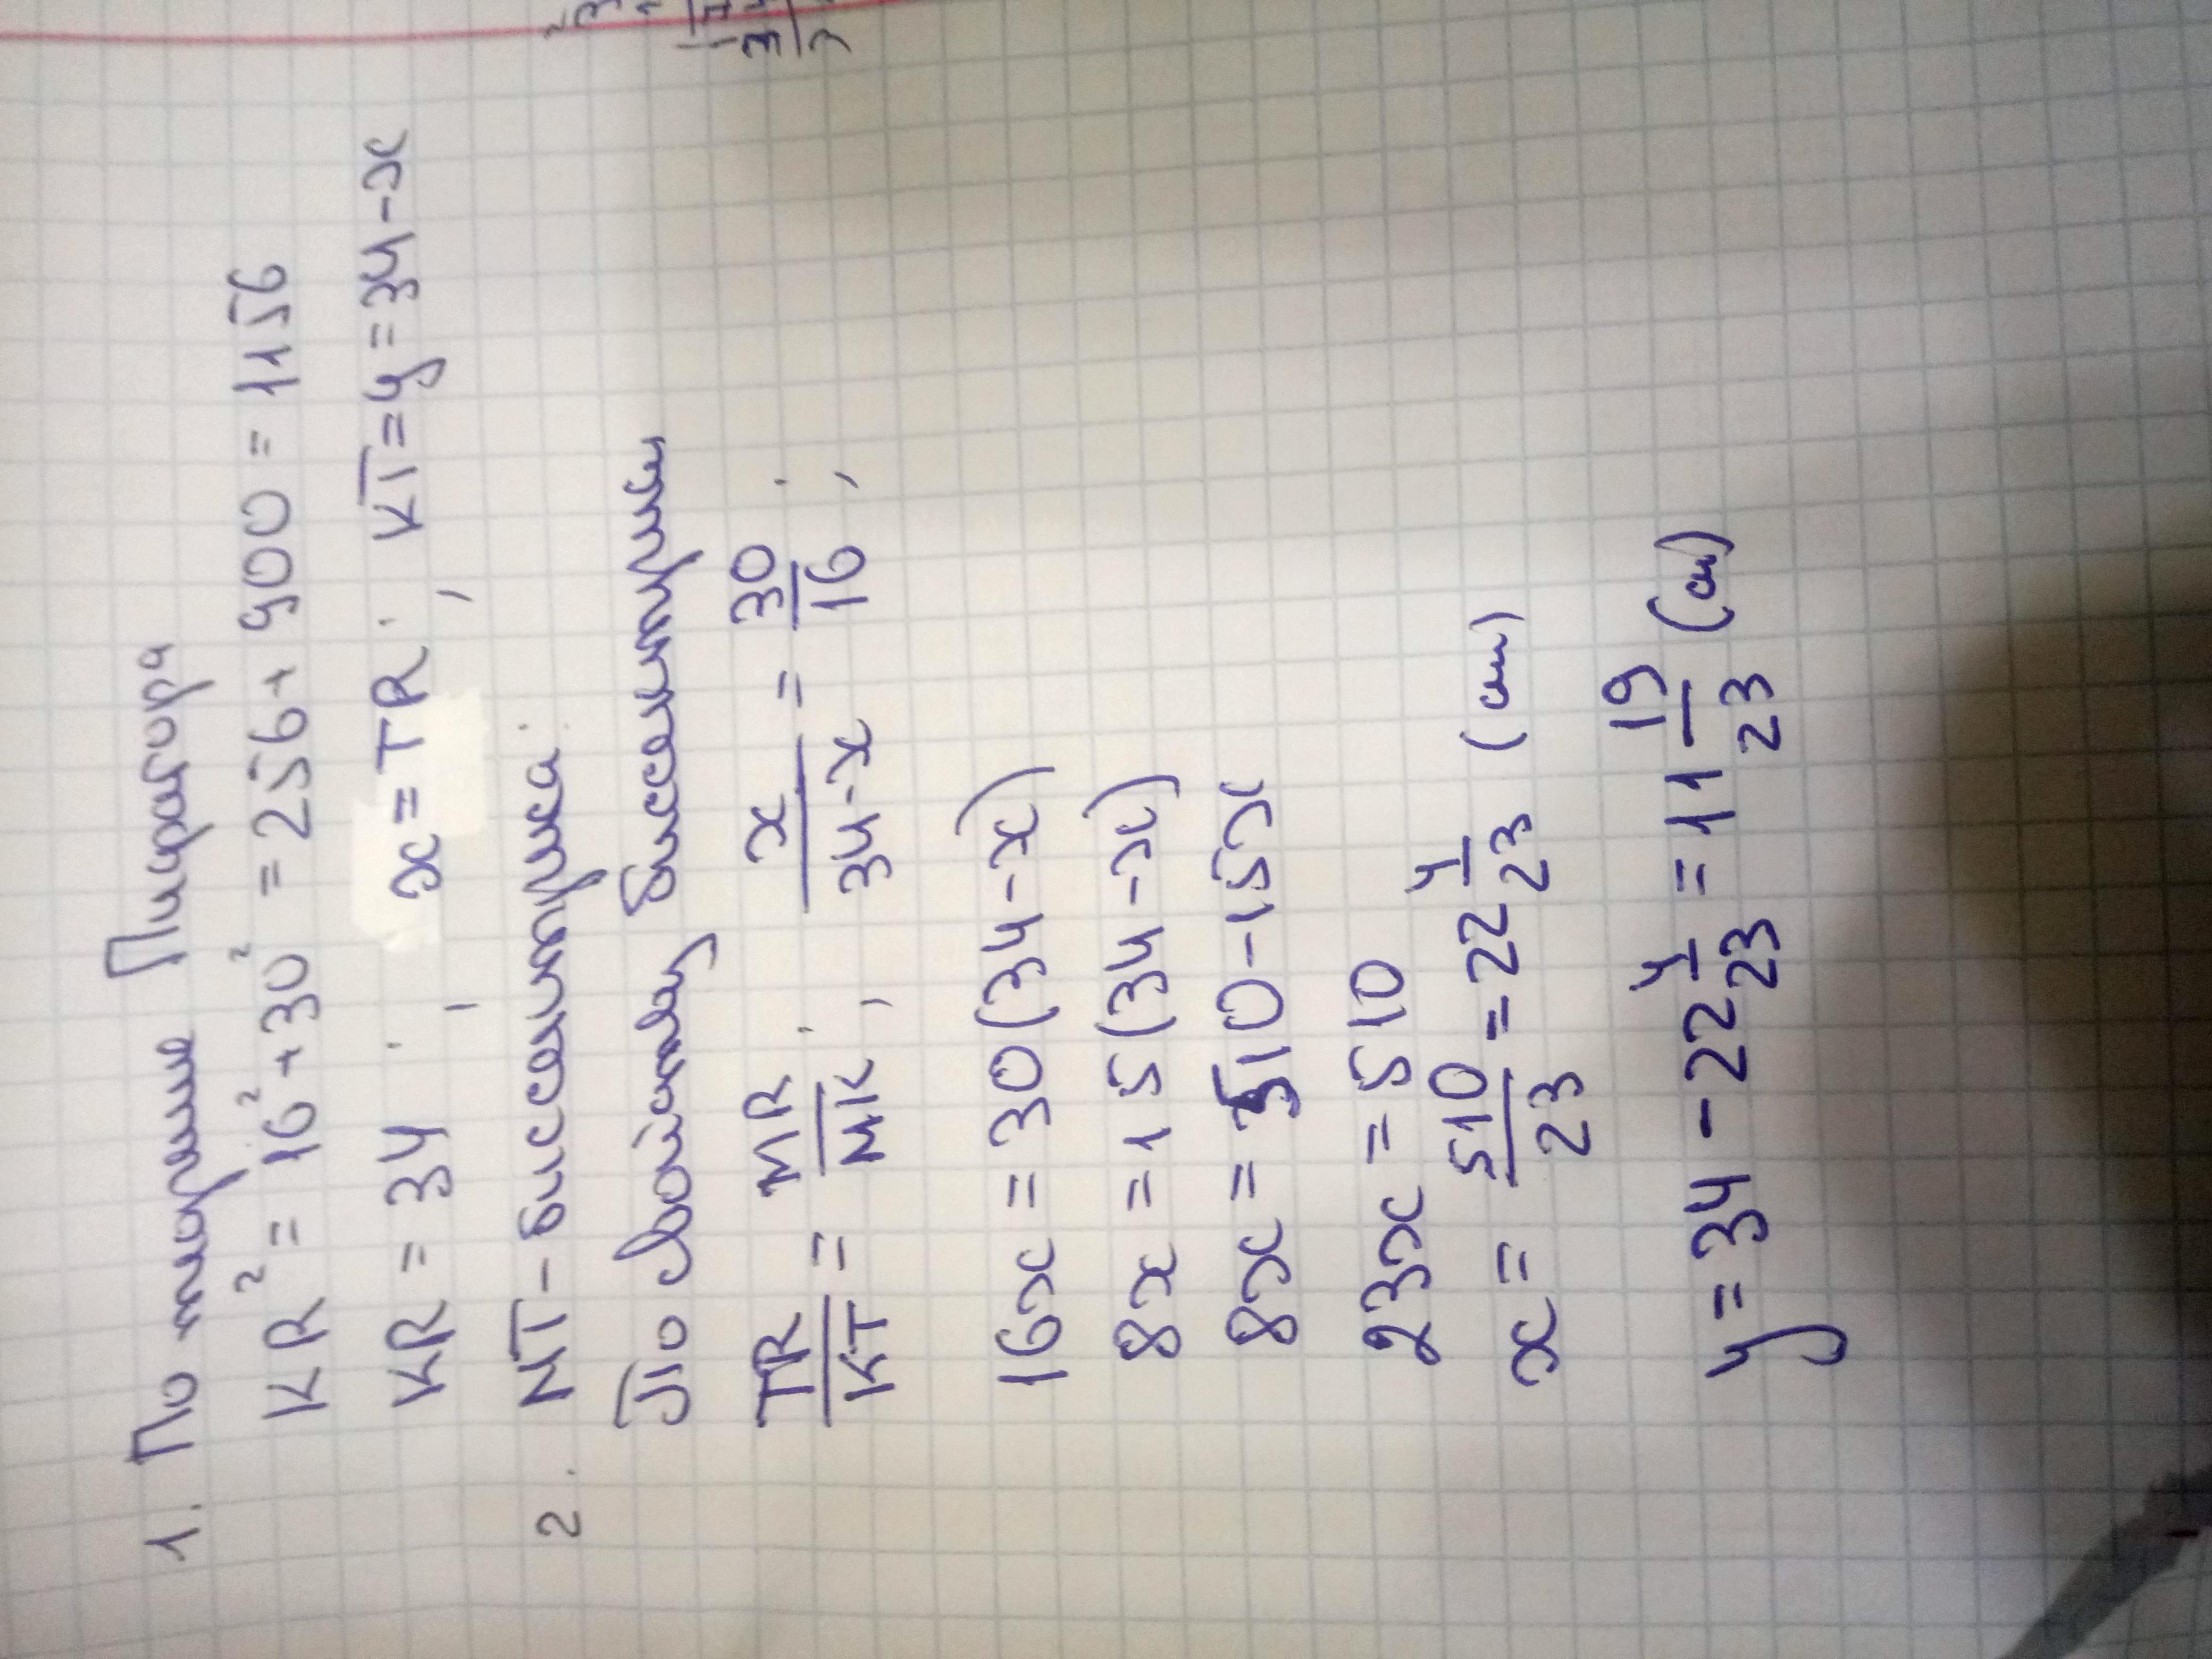 1. По теореме Пифагора
KR² = 16² + 30² = 256 + 900 = 1156
KR = 34 ; x = TR ; KT = y = 34 - x
2. MT - биссектриса.
По свойству биссектрисы
TR/KT = MR/MK ; x/(34-x) = 30/16 ;
16x = 30(34-x)
8x = 15(34-x)
8x = 510 - 15x
23x = 510
x = 510/23 = 22 4/23 (см)
y = 34 - 22 4/23 = 11 19/23 (см)